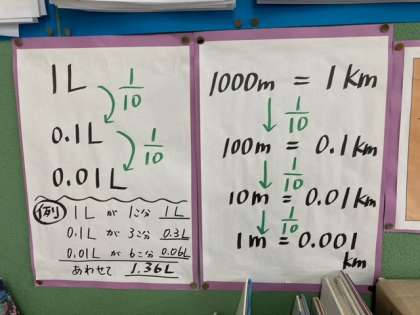 1L
1/10
0.1L
1/10
0.01L
例 1L が 1こ分 1L
0.1L が 3こ分 0.3L
0.01L が 6こ分 0.06L
あわせて 1.36L
1000m = 1km
1/10
100m = 0.1km
1/10
10m = 0.01km
1/10
1m = 0.001
km